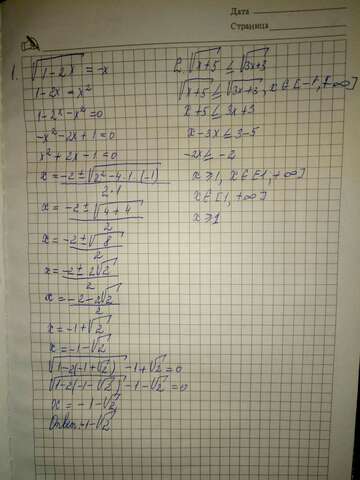 Дата
Страница
1. √1-2x = -x
1-2x = x²
1-2ˣ-x²=0
-x²-2x+1=0
x²+2x-1=0
x = -2±√2²-4·1·(-1) / 2·1
x = -2±√4+4 / 2
x = -2±√8 / 2
x = -2±2√2 / 2
x = -2-2√2 / 2
x = -1+√2
x = -1-√2
√1-2(-1+√2) -1+√2=0
√1-2(-1-√2) -1-√2=0
x = -1-√2
Ответ: -1-√2
2. √x+5 ≤ √3x+3
√x+5 ≤ √3x+3, x∈[-1, +∞]
x+5 ≤ 3x+3
x-3x ≤ 3-5
-2x ≤ -2
x ≥ 1, x∈[1, +∞]
x∈[1, +∞]
x ≥ 1